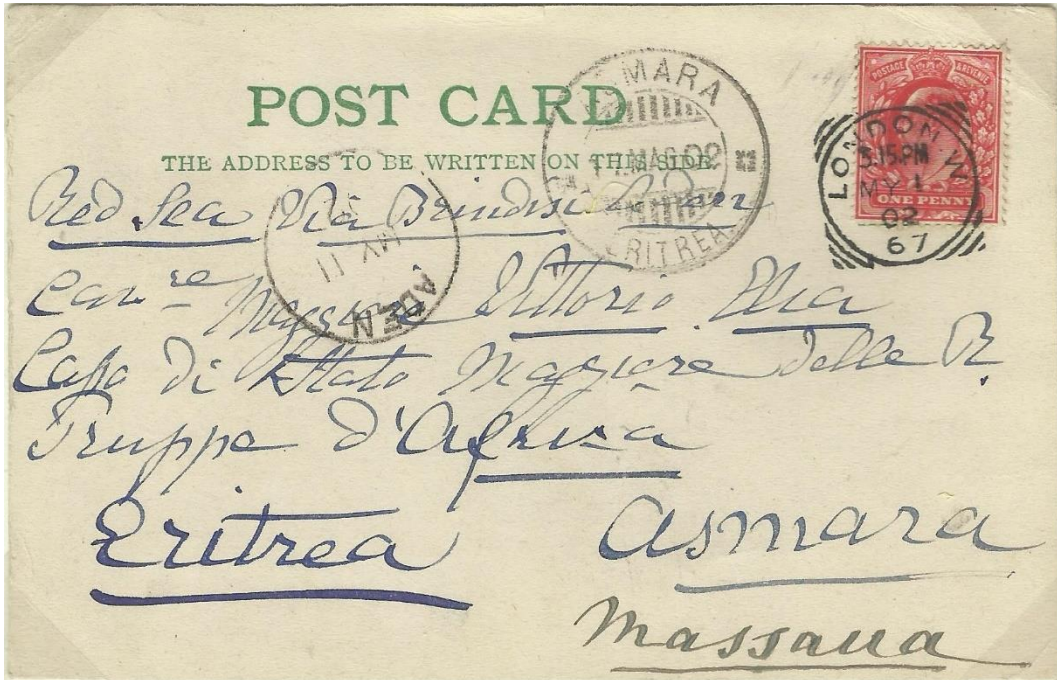 POST CARD
THE ADDRESS TO BE WRITTEN ON THIS SIDE
POSTAGE & REVENUE
ONE PENNY
LONDON. W
3.15.PM
MY 1
02
67
ASMARA
MAG 02
ERITREA
ADEN
MY 11
Red Sea Via Brindisi
Cav.re Maggiore Vittorio Elia
Capo di Stato Maggiore delle R.
Truppe d'Africa
Eritrea
Asmara
Massaua